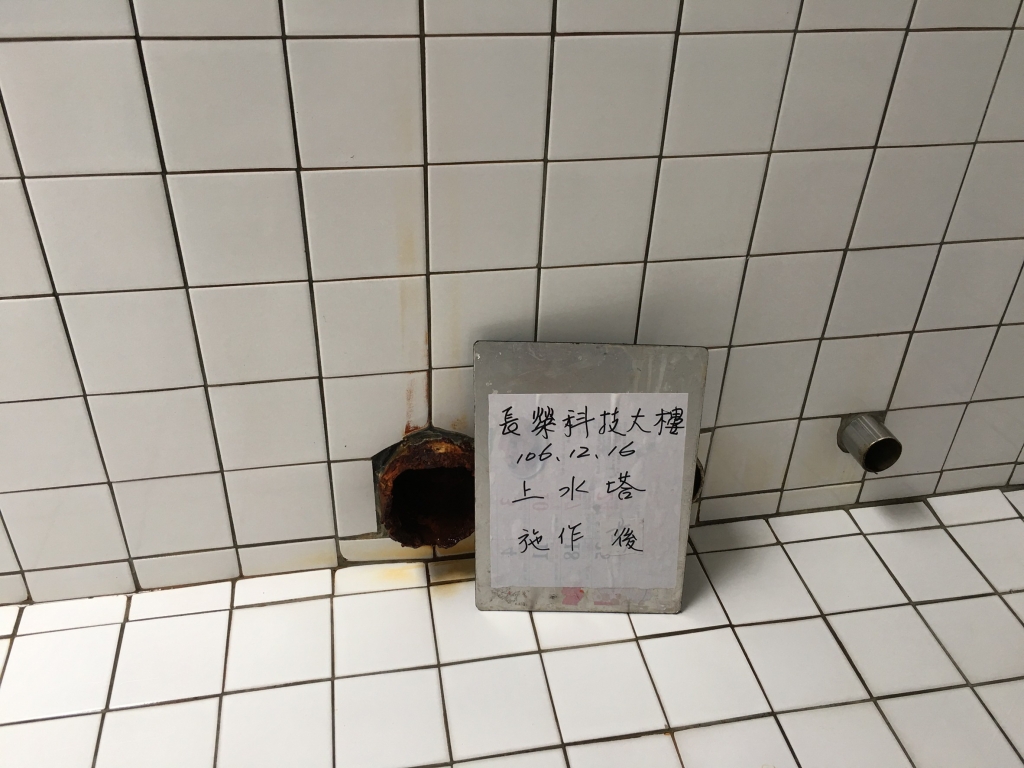 長榮科技大樓
106.12.16
上水塔
施作後